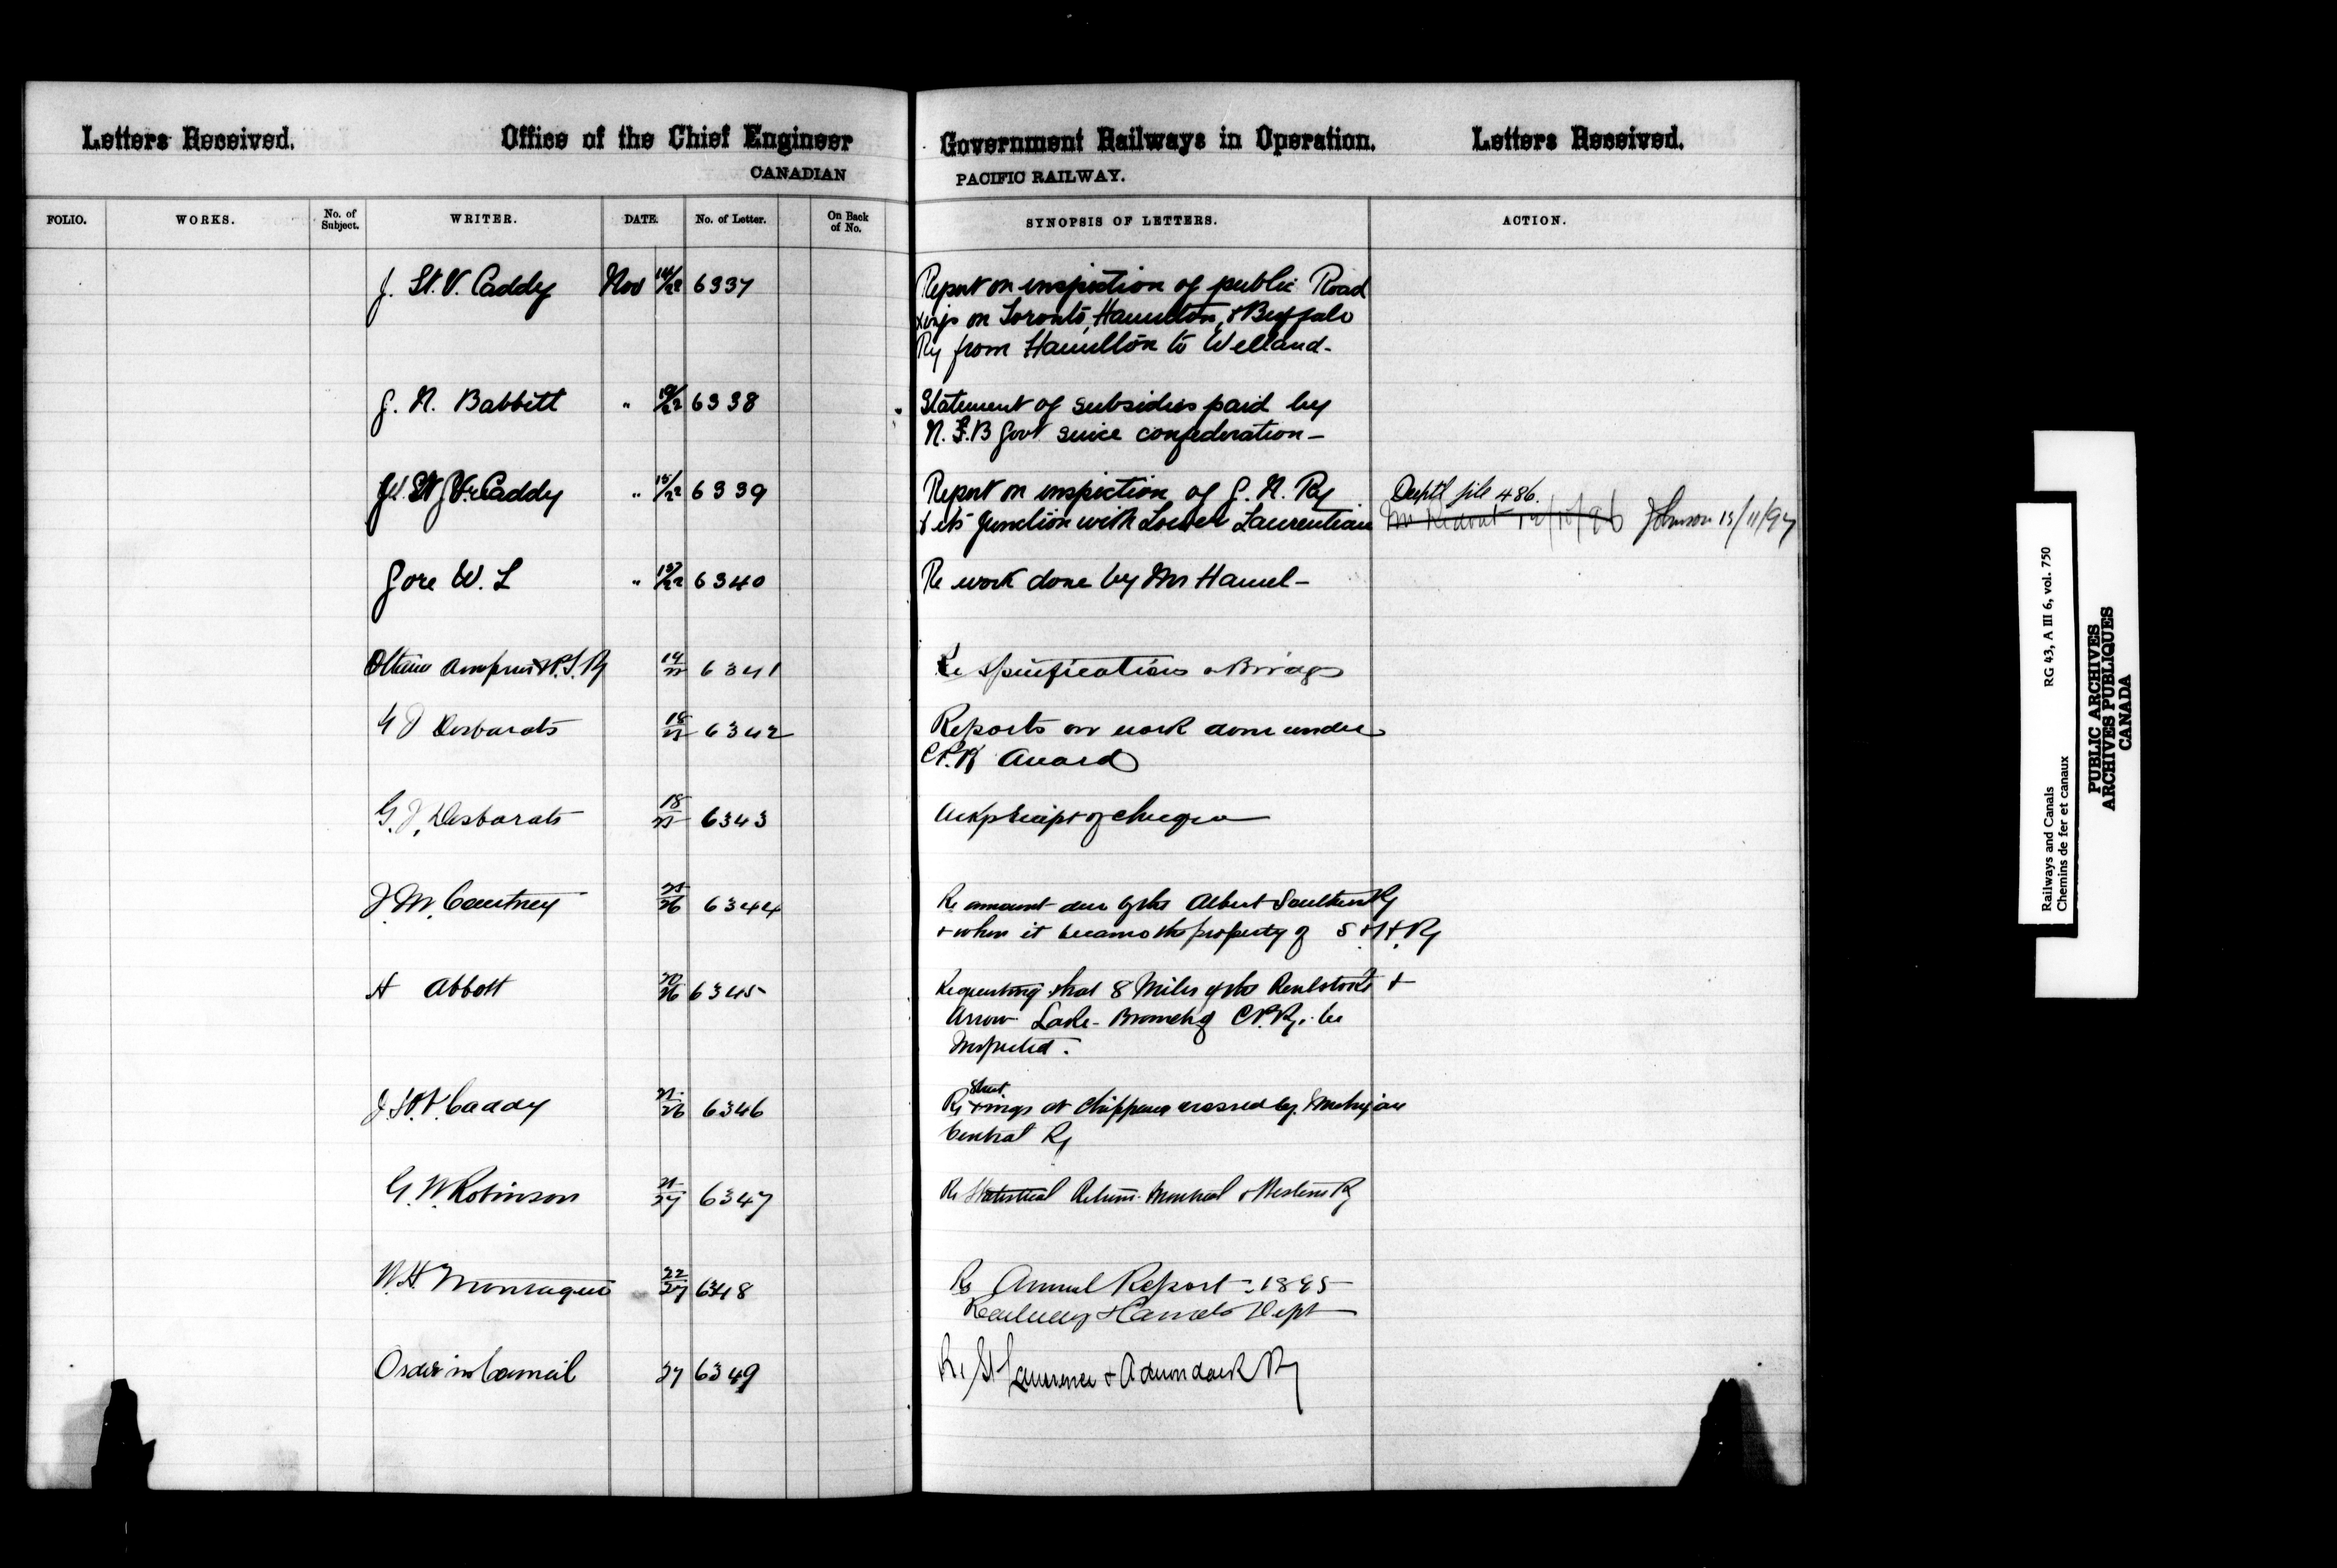 Letters Received. Office of the Chief Engineer Government Railways in Operation. Letters Received.
CANADIAN PACIFIC RAILWAY.
FOLIO. WORKS. No. of Subject. WRITER. DATE. No. of Letter. On Back of No. SYNOPSIS OF LETTERS. ACTION.
J. St. V. Caddy Nov 14/22 6337 Report on inspection of public Road
xings on Toronto, Hamilton, & Buffalo
Ry from Hamilton to Welland-
G. N. Babbitt " 19/22 6338 Statement of subsidies paid by
N. B Govt since confederation-
J. St. V. Caddy " 15/22 6339 Report on inspection of G. N. Ry Deptl file 486.
& its junction with Lower Laurentian Johnson 13/11/97
Gore W. L " 6340 Re work done by Mr Hamel-
Ottawa Arnprior & P. S. Ry 19/25 6341 Re Specifications Bridge
G J Desbarats 18/25 6342 Reports on work done under
C.P.R Award
G. J. Desbarats 18/25 6343 receipt of cheque
J. M. Courtney 25/26 6344 Re amount due by the Albert Southern Ry
& when it became the property of S. & H. Ry
H Abbott 20/26 6345 Requesting that 8 Miles of the Revelstoke &
Arrow Lake- Branch of C.P.Ry. be
Inspected.
J. St. V. Caddy 21/26 6346 Re Street xings at Chippewa crossed by Michigan
Central Ry
G. W. Robinson 21/27 6347 Re Statistical Return Montreal & Western Ry
W. H. Montague 22/27 6348 Re Annual Report - 1895
Railway & Canals Dept
Order in Council 27 6349 Re St Lawrence & Adirondack Ry
Railways and Canals RG 43, A III 6, vol. 750
Chemins de fer et canaux
PUBLIC ARCHIVES
ARCHIVES PUBLIQUES
CANADA